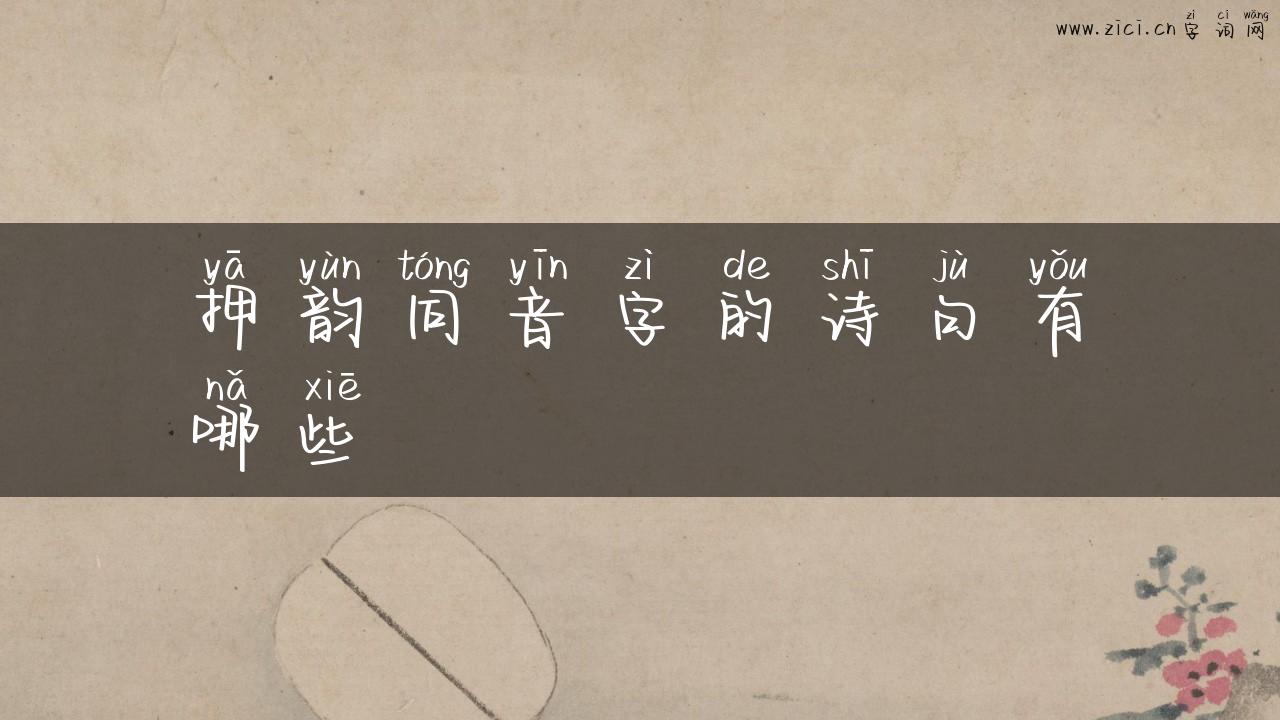 zì cí wǎng
www.zici.cn 字 词 网
yā yùn tóng yīn zì de shī jù yǒu
押 韵 同 音 字 的 诗 句 有
nǎ xiē
哪 些